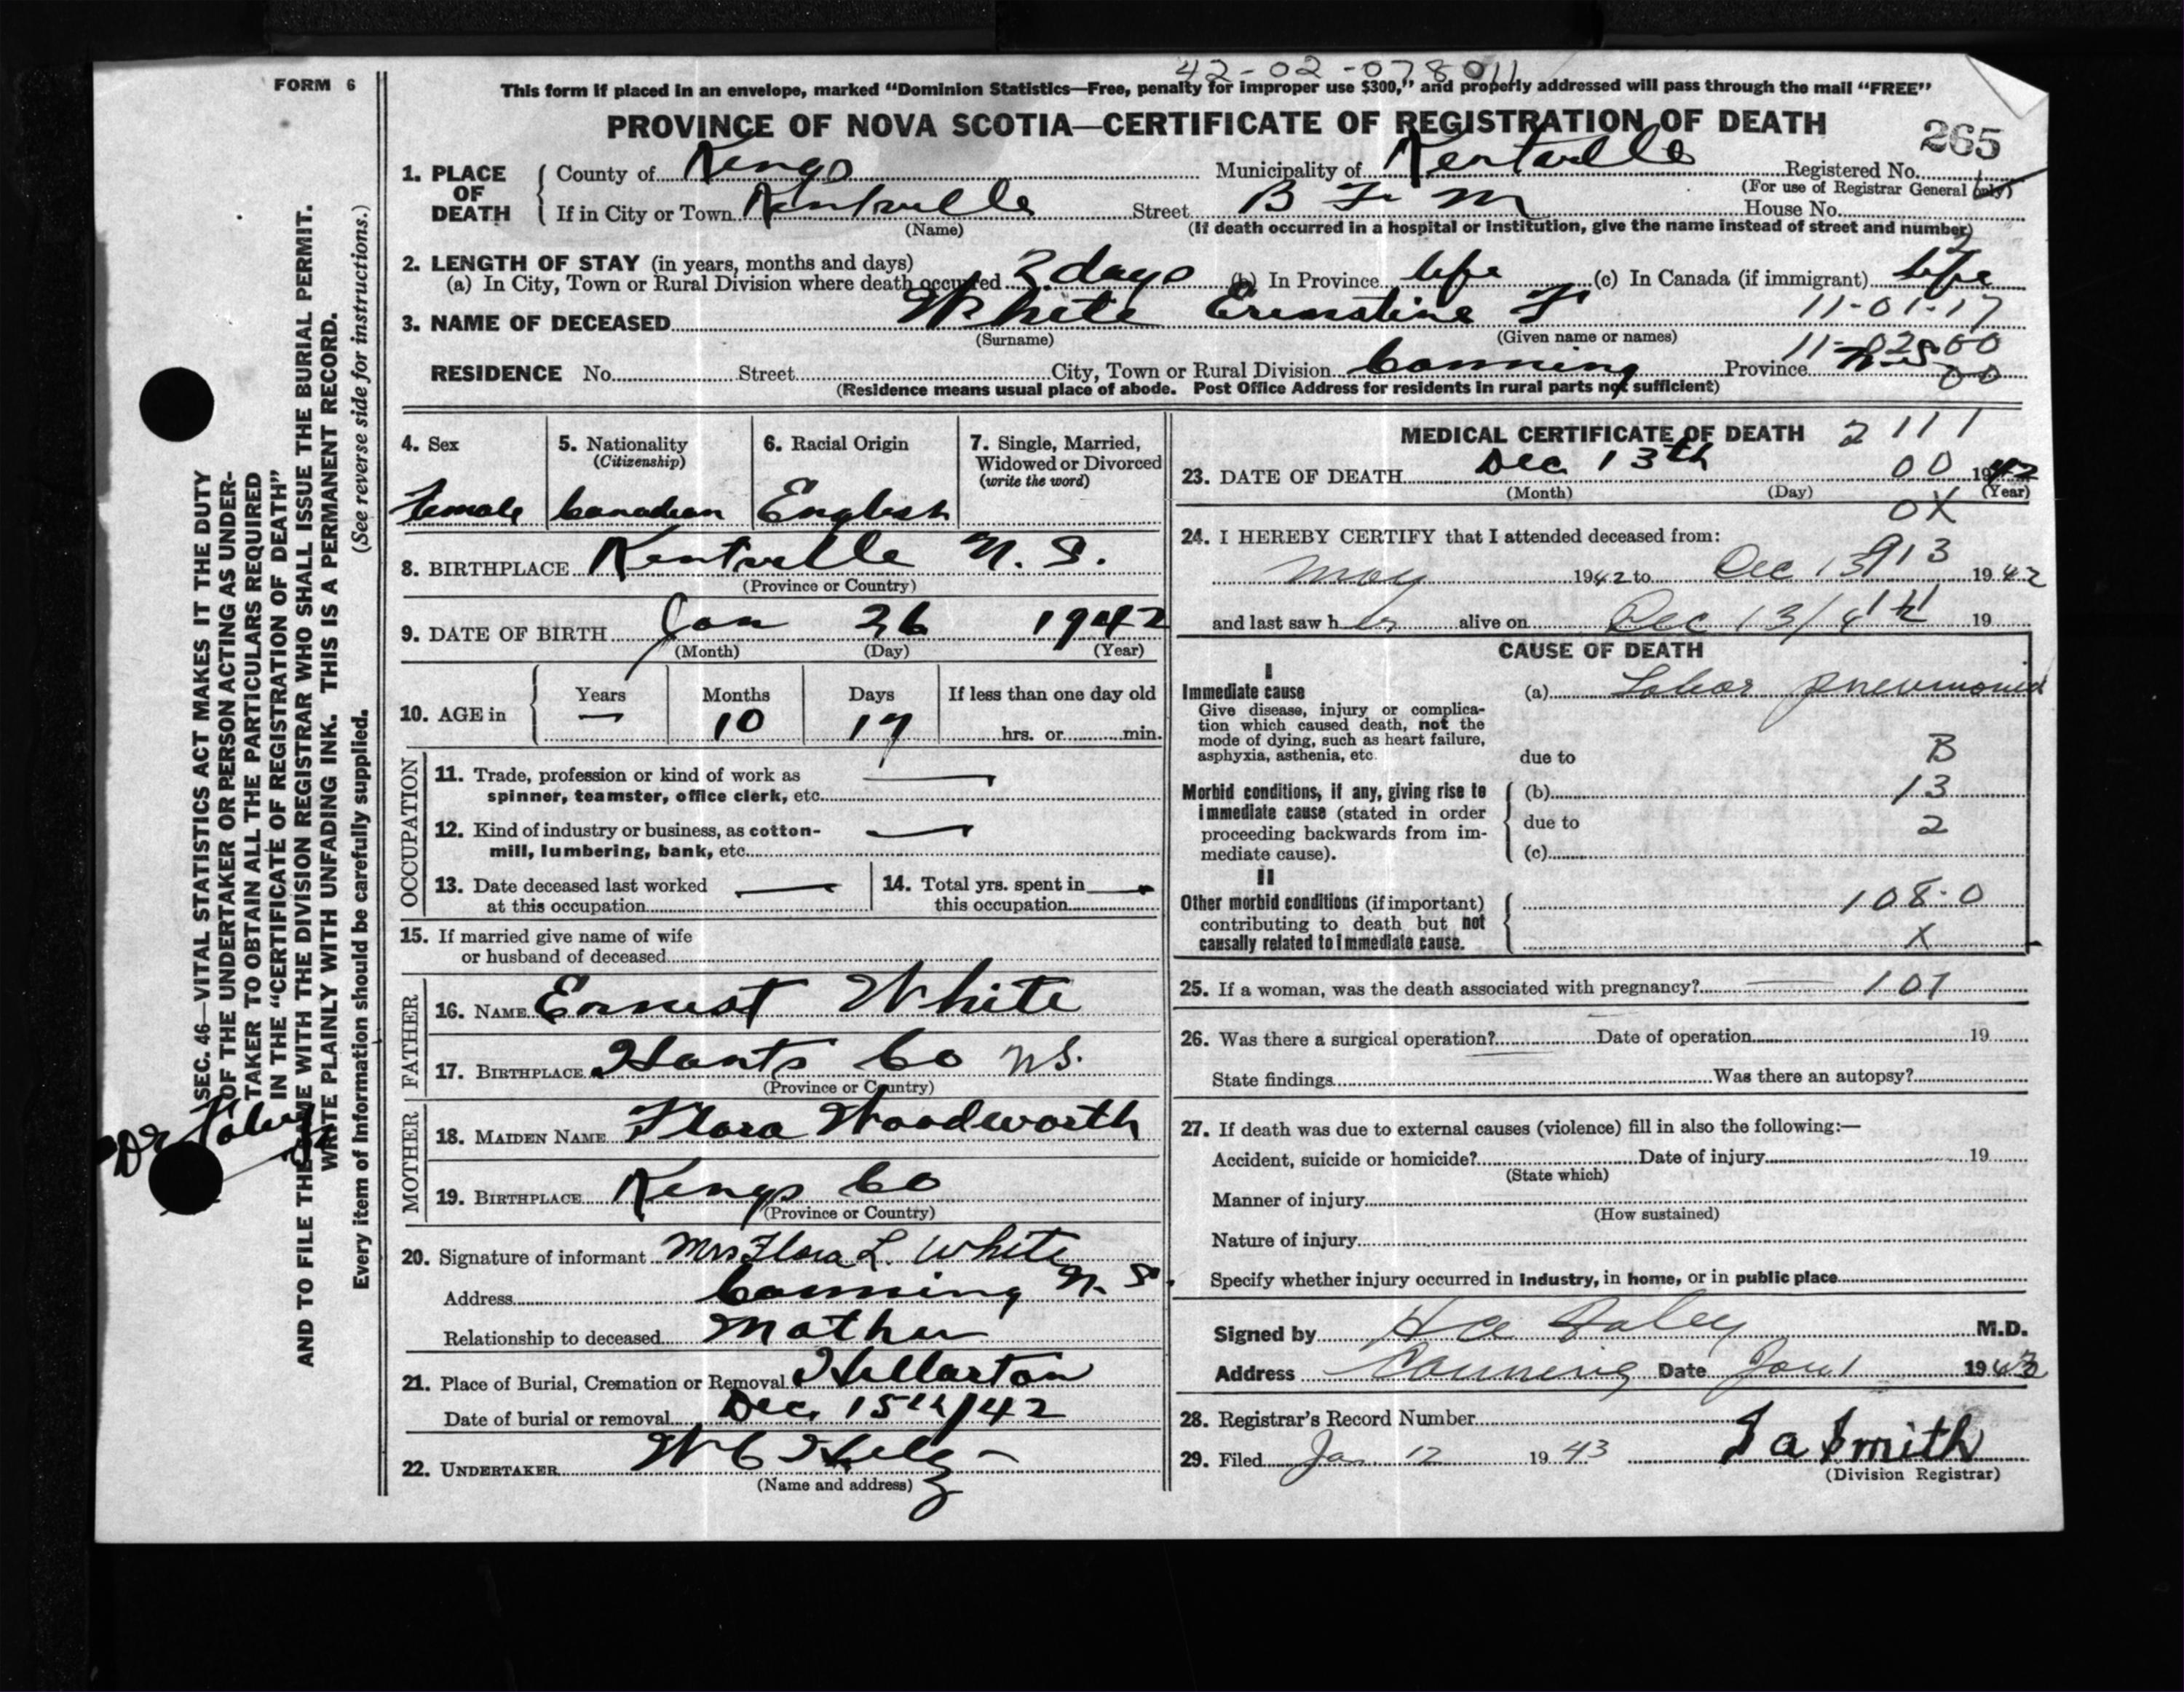 42-02-078011
FORM 6
This form if placed in an envelope, marked “Dominion Statistics—Free, penalty for improper use $300,” and properly addressed will pass through the mail “FREE”
PROVINCE OF NOVA SCOTIA—CERTIFICATE OF REGISTRATION OF DEATH
265
1. PLACE OF DEATH { County of Kings Municipality of Kentville Registered No.
(For use of Registrar General only)
If in City or Town Kentville Street B F M House No.
(Name) (If death occurred in a hospital or institution, give the name instead of street and number)
2. LENGTH OF STAY (in years, months and days)
(a) In City, Town or Rural Division where death occurred 3 days (b) In Province life (c) In Canada (if immigrant) life
3. NAME OF DECEASED White Ernestine F 11-01-17
(Surname) (Given name or names)
11-02-00
RESIDENCE No. Street City, Town or Rural Division Canning Province N.S. 00
(Residence means usual place of abode. Post Office Address for residents in rural parts not sufficient)
4. Sex
Female
5. Nationality
(Citizenship)
Canadian
6. Racial Origin
English
7. Single, Married, Widowed or Divorced
(write the word)
8. BIRTHPLACE Kentville N. S.
(Province or Country)
9. DATE OF BIRTH Jan 26 1942
(Month) (Day) (Year)
10. AGE in { Years Months Days If less than one day old
— 10 17 hrs. or min.
OCCUPATION
11. Trade, profession or kind of work as —
spinner, teamster, office clerk, etc.
12. Kind of industry or business, as cotton- —
mill, lumbering, bank, etc.
13. Date deceased last worked —
at this occupation
14. Total yrs. spent in —
this occupation
15. If married give name of wife
or husband of deceased
FATHER
16. NAME Ernest White
17. BIRTHPLACE Hants Co NS.
(Province or Country)
MOTHER
18. MAIDEN NAME Flora Woodworth
19. BIRTHPLACE Kings Co
(Province or Country)
20. Signature of informant Mrs Flora L. White
Address Canning N. S.
Relationship to deceased Mother
21. Place of Burial, Cremation or Removal Hillarton
Date of burial or removal Dec. 15th/42
22. UNDERTAKER W C
(Name and address)
MEDICAL CERTIFICATE OF DEATH 2 111
23. DATE OF DEATH Dec 13th 00 1942
(Month) (Day) (Year)
0X
24. I HEREBY CERTIFY that I attended deceased from:
913
May 1942 to Dec 13 1942
and last saw her alive on Dec 13/42 19
CAUSE OF DEATH
I
Immediate cause
Give disease, injury or complica-
tion which caused death, not the
mode of dying, such as heart failure,
asphyxia, asthenia, etc.
(a) Lobar pneumonia
due to B
Morbid conditions, if any, giving rise to
immediate cause (stated in order
proceeding backwards from im-
mediate cause).
(b) 13
due to 2
(c)
II
Other morbid conditions (if important)
contributing to death but not
causally related to immediate cause.
108-0
X
25. If a woman, was the death associated with pregnancy? — 107
26. Was there a surgical operation? Date of operation 19
State findings Was there an autopsy?
27. If death was due to external causes (violence) fill in also the following:—
Accident, suicide or homicide? Date of injury 19
(State which)
Manner of injury
(How sustained)
Nature of injury
Specify whether injury occurred in industry, in home, or in public place
Signed by Foley M.D.
Address Canning Date Jan 1 1943
28. Registrar's Record Number
29. Filed Jan. 12 1943 Smith
(Division Registrar)
SEC. 46—VITAL STATISTICS ACT MAKES IT THE DUTY
OF THE UNDERTAKER OR PERSON ACTING AS UNDER-
TAKER TO OBTAIN ALL THE PARTICULARS REQUIRED
IN THE “CERTIFICATE OF REGISTRATION OF DEATH”
AND TO FILE THE SAME WITH THE DIVISION REGISTRAR WHO SHALL ISSUE THE BURIAL PERMIT.
WRITE PLAINLY WITH UNFADING INK. THIS IS A PERMANENT RECORD.
Every item of Information should be carefully supplied. (See reverse side for instructions.)
Dr Foley